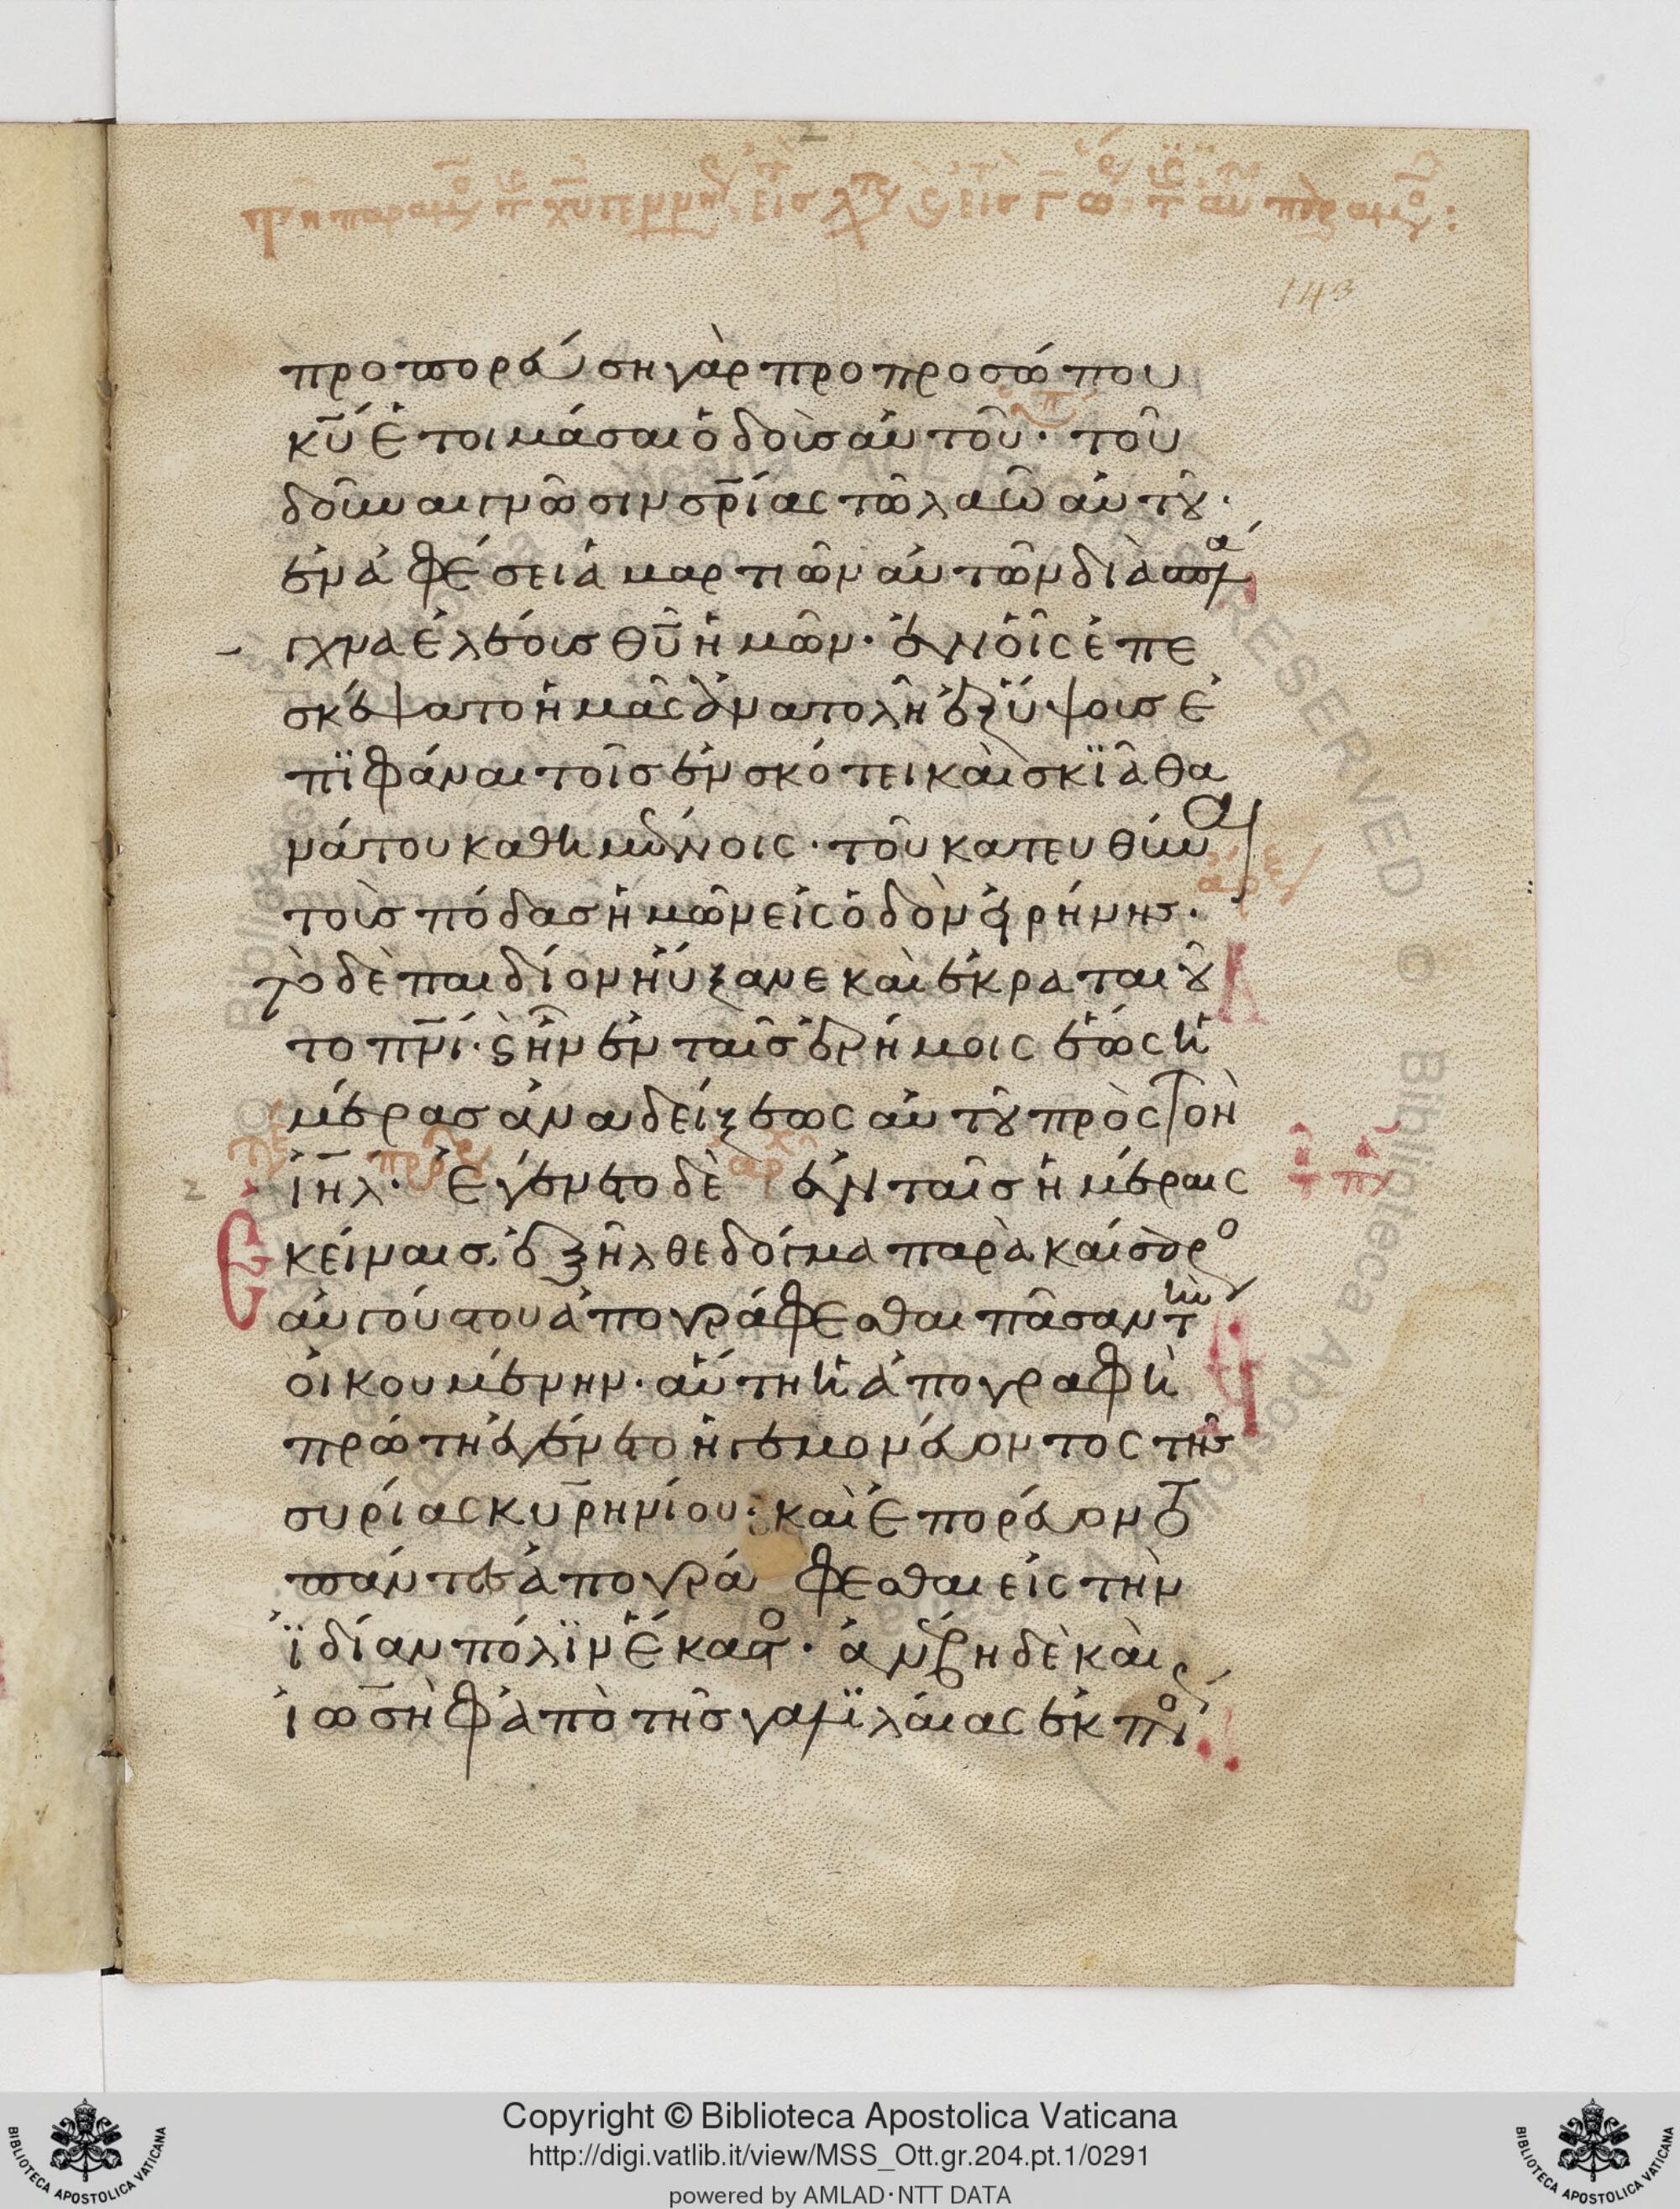 143
προπορεύση γὰρ πρὸ προσώπου
κ̅υ̅ ἑτοιμάσαι ὁδοὺσ αὐτοῦ · τοῦ
δοῦναι γνῶσιν σ̅ρ̅ίας τῶ λαῶ αὐτοῦ ·
ἐν ἀφέσει ἁμαρτιῶν αὐτῶν διὰ σπλά
γχνα ἐλέους θ̅υ̅ ἡμῶν · ἐν οἷς ἐπε
σκέψατο ἡμᾶς ἀνατολὴ ἐξ ὕψους ἐ
πϊφάναι τοῖσ ἐν σκότει καὶ σκϊᾶ θα
νάτου καθημένοις · τοῦ κατευθῦναι
τοὺσ πόδασ ἡμῶν εἰς ὁδὸν εἰρήνησ ·
τὸ δὲ παιδίον ηὔξανε καὶ ἐκραταιοῦ
το π̅ν̅ι · ϗ ἦν ἐν ταῖσ ἐρήμοις ἕως ἡ
μέρασ ἀναδείξεως αὐτοῦ πρὸς τὸν
ι̅η̅λ · Ἐγένετο δὲ ἐν ταῖσ ἡμέραις
κείναισ ἐξῆλθε δόγμα παρὰ καίσαρο
αὐγούστου ἀπογράφεσθαι πᾶσαν τὴν
οἰκουμένην · αὕτη ἡ ἀπογραφὴ
πρώτη ἐγένετο ἡγεμονεύοντος τῆσ
συρίας κυρηνίου · καὶ ἐπορεύοντο
πάντεσ ἀπογράφεσθαι εἰς τὴν
ἰδίαν πόλϊν ἕκαστο · ἀνέβη δὲ καὶ
ἰωσὴφ ἀπὸ τῆσ γαλϊλαίας ἐκ πό
Copyright © Biblioteca Apostolica Vaticana
http://digi.vatlib.it/view/MSS_Ott.gr.204.pt.1/0291
powered by AMLAD·NTT DATA
BIBLIOTECA APOSTOLICA VATICANA
BIBLIOTECA APOSTOLICA VATICANA